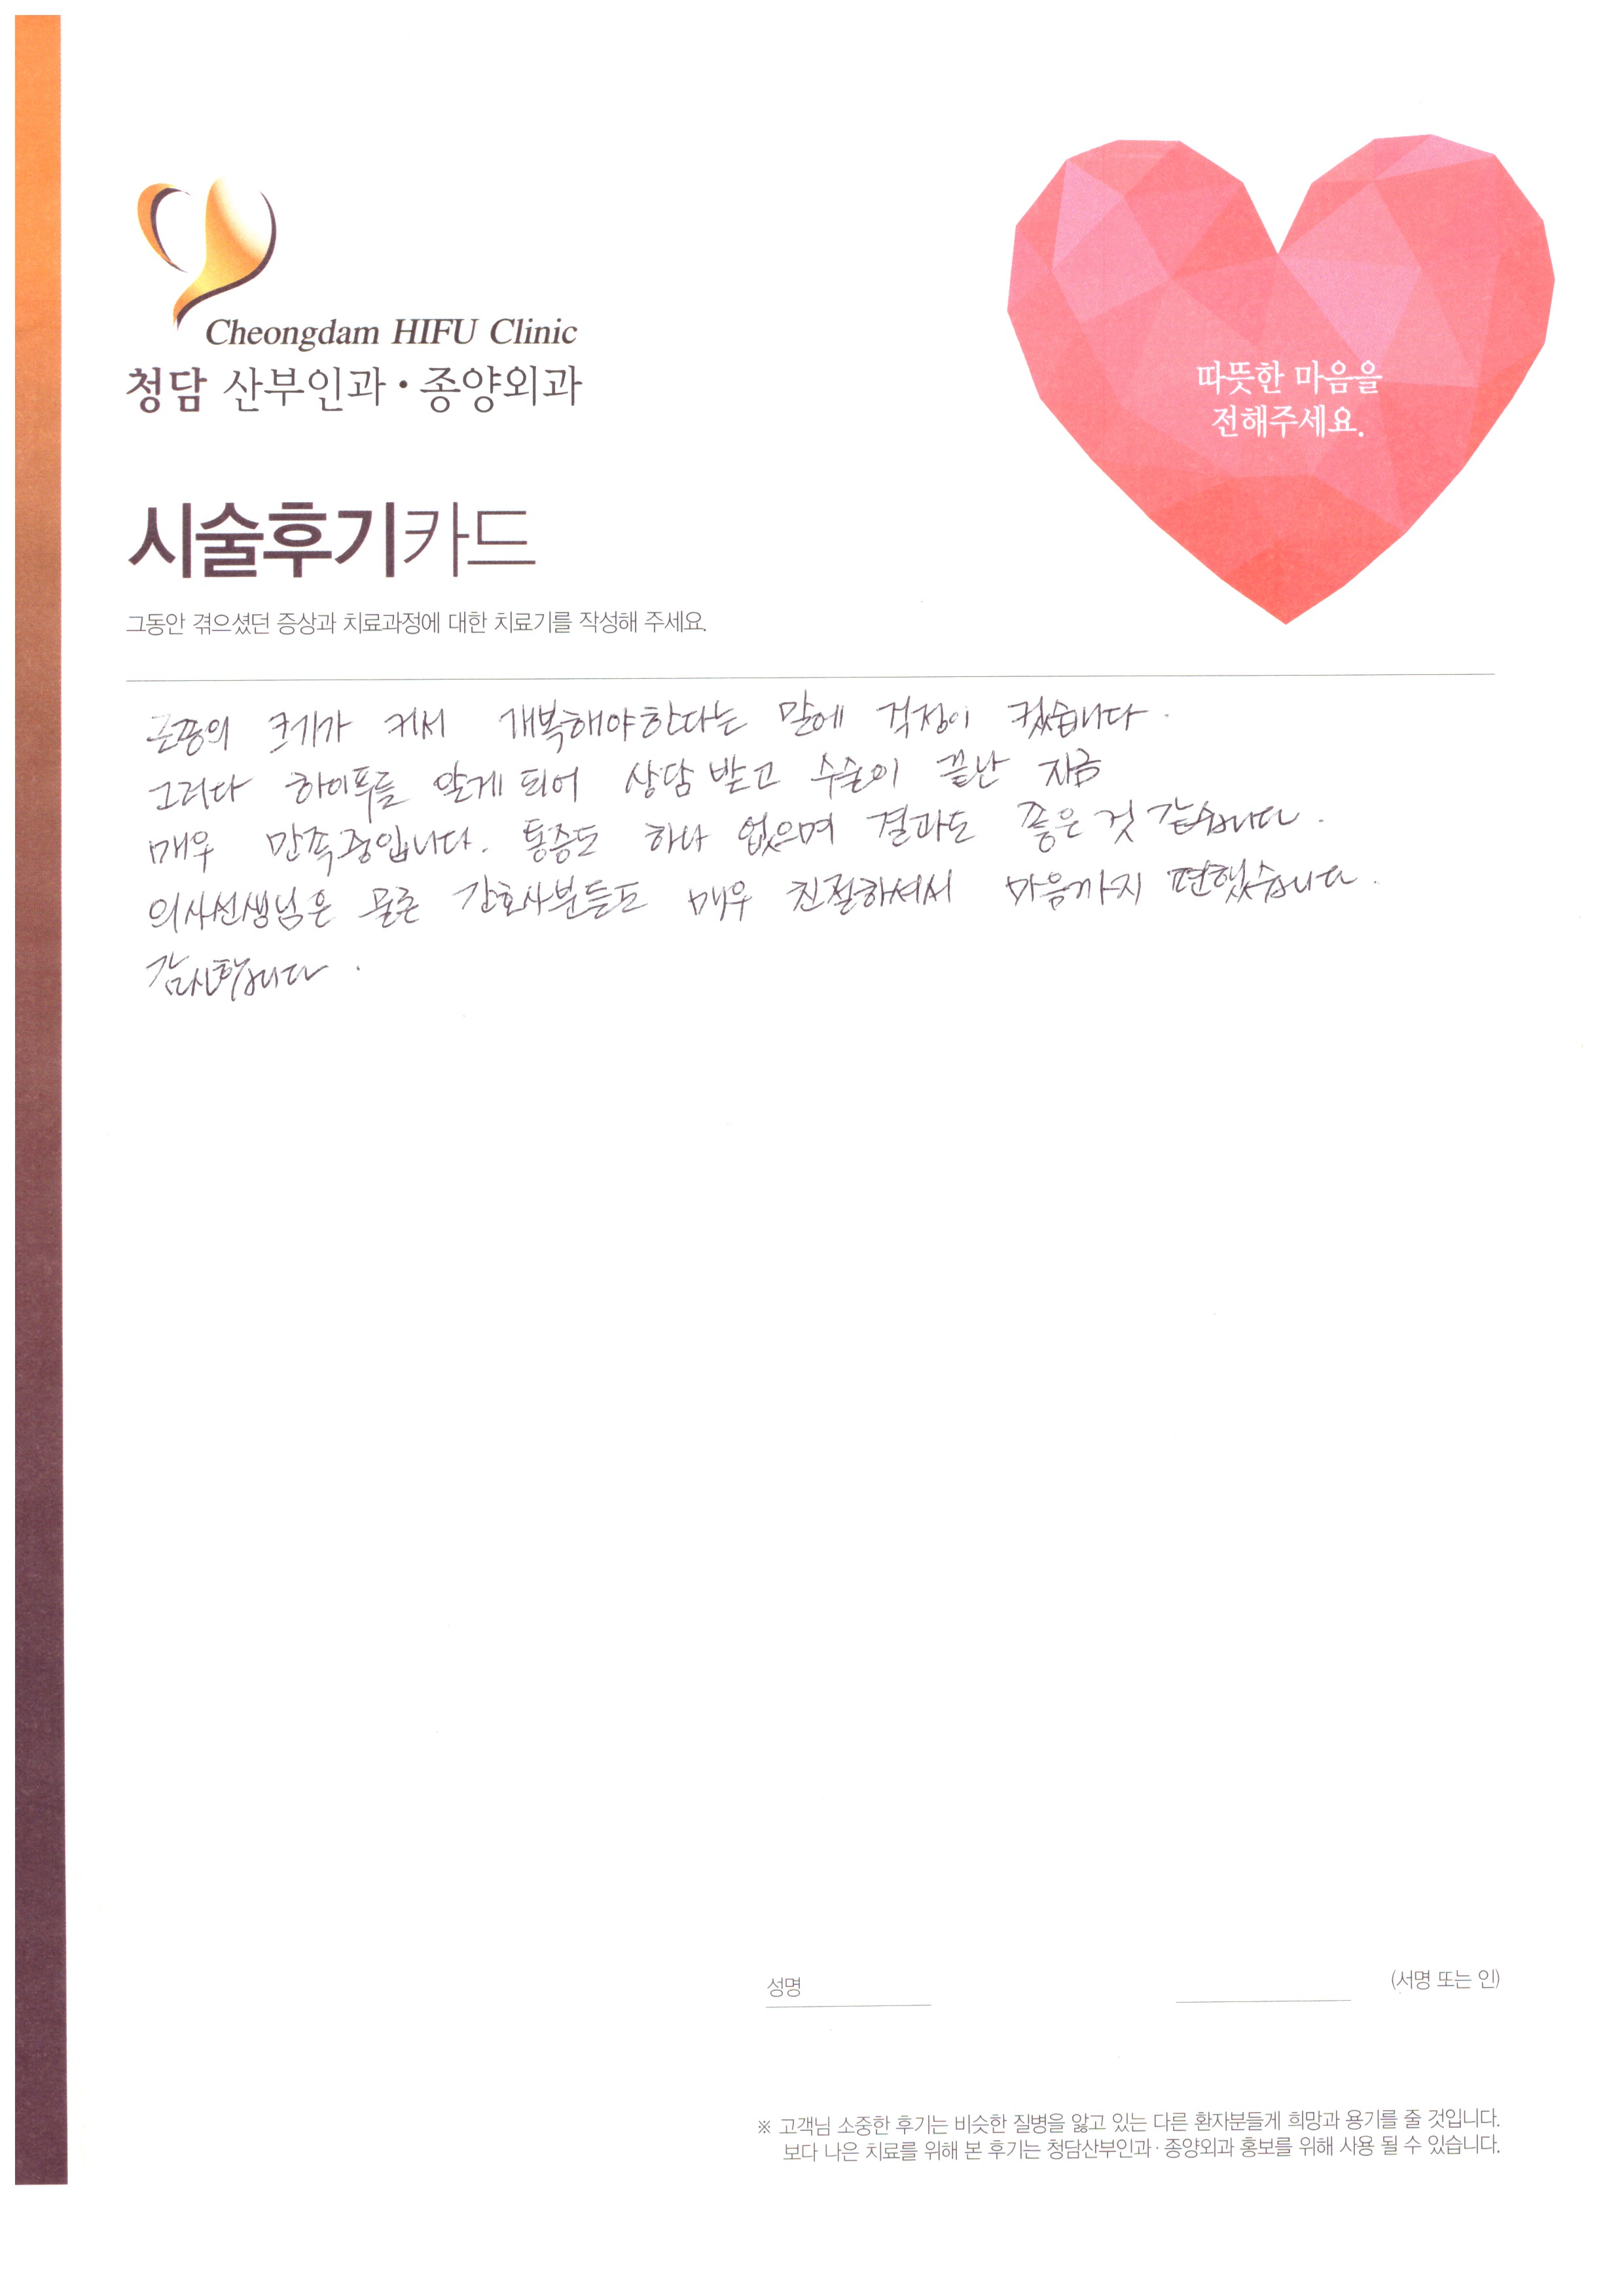 Cheongdam HIFU Clinic
청담 산부인과·종양외과
따뜻한 마음을
전해주세요.
시술후기카드
그동안 겪으셨던 증상과 치료과정에 대한 치료기를 작성해 주세요.
근종의 크기가 커서 개복해야한다는 말에 걱정이 컸습니다.
그러다 하이푸를 알게 되어 상담 받고 수술이 끝난 지금
매우 만족중입니다. 통증도 하나 없으며 결과도 좋은 것 같습니다.
의사선생님은 물론 간호사분들도 매우 친절하셔서 마음까지 편했습니다.
감사합니다.
성명
(서명 또는 인)
※ 고객님 소중한 후기는 비슷한 질병을 앓고 있는 다른 환자분들게 희망과 용기를 줄 것입니다.
보다 나은 치료를 위해 본 후기는 청담산부인과·종양외과 홍보를 위해 사용 될 수 있습니다.